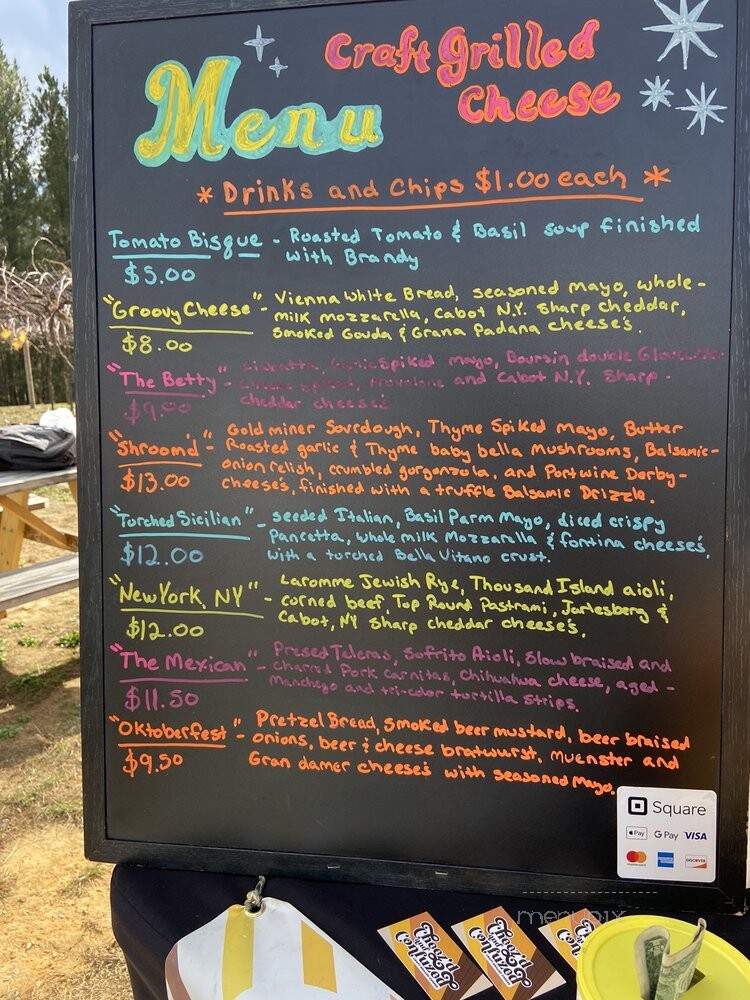 Menu
Craft Grilled
Cheese
* Drinks and Chips $1.00 each *
Tomato Bisque - Roasted Tomato & Basil soup finished
with Brandy
$5.00
"Groovy Cheese" - Vienna White Bread, seasoned mayo, whole-
milk mozzarella, Cabot N.Y. sharp cheddar,
smoked Gouda & Grana Padana cheese's.
$8.00
"The Betty" - Spiked mayo, Boursin double
and Cabot N.Y. Sharp -
cheddar cheese's
$9.00
"Shroom'd" - Goldminer Sourdough, Thyme Spiked Mayo, Butter
Roasted garlic & Thyme baby bella Mushrooms, Balsamic-
onion relish, crumbled gorgonzola, and Portwine Derby-
cheese's, finished with a truffle Balsamic Drizzle.
$13.00
"Torched Sicilian" - seeded Italian, Basil Parm Mayo, diced crispy
Pancetta, whole milk Mozzarella & fontina cheese's,
with a torched Bella Vitano crust.
$12.00
"New York, NY" - Laromme Jewish Rye, Thousand Island aioli,
corned beef, Top Round Pastrami, Jarlesberg &
Cabot, NY sharp cheddar cheese's.
$12.00
"The Mexican" - Presed Teleras, Sofrito Aioli, Slow braised and
charred Pork Carnitas, Chihuahua cheese, aged -
Manchego and tri-color tortilla strips.
$11.50
"Oktoberfest" - Pretzel Bread, smoked beer mustard, beer braised
onions, beer & cheese bratwurst, muenster and
Gran damer cheese's with seasoned Mayo.
$9.50
Square
Pay G Pay VISA
DISCOVER
menupix